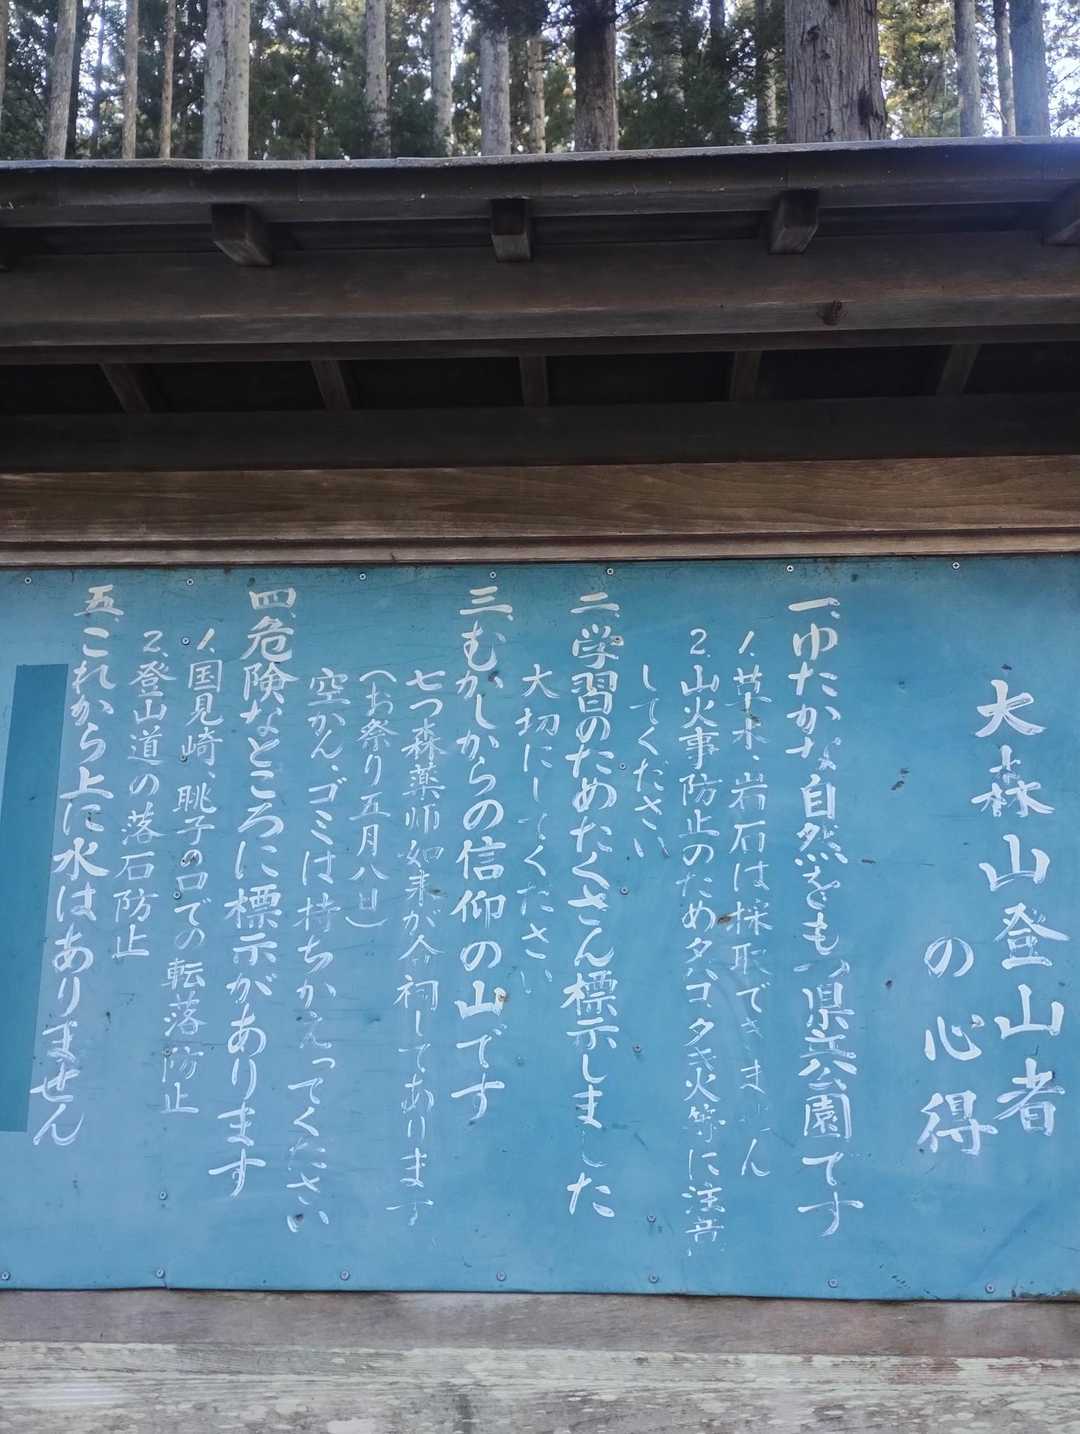 大森山登山者
の心得
一、ゆたかな自然をもつ県立公園です
1. 草木、岩石は採取できません
2. 山火事防止のためタバコ、タキ火等に注意
してください
二、学習のためたくさん標示しました
大切にしてください
三、むかしからの信仰の山です
七つ森薬師如来が合祠してあります
(お祭り五月八日)
空かん、ゴミは持ちかえってください
四、危険なところに標示があります
1. 国見崎、眺子の口での転落防止
2. 登山道の落石防止
五、これから上に水はありません